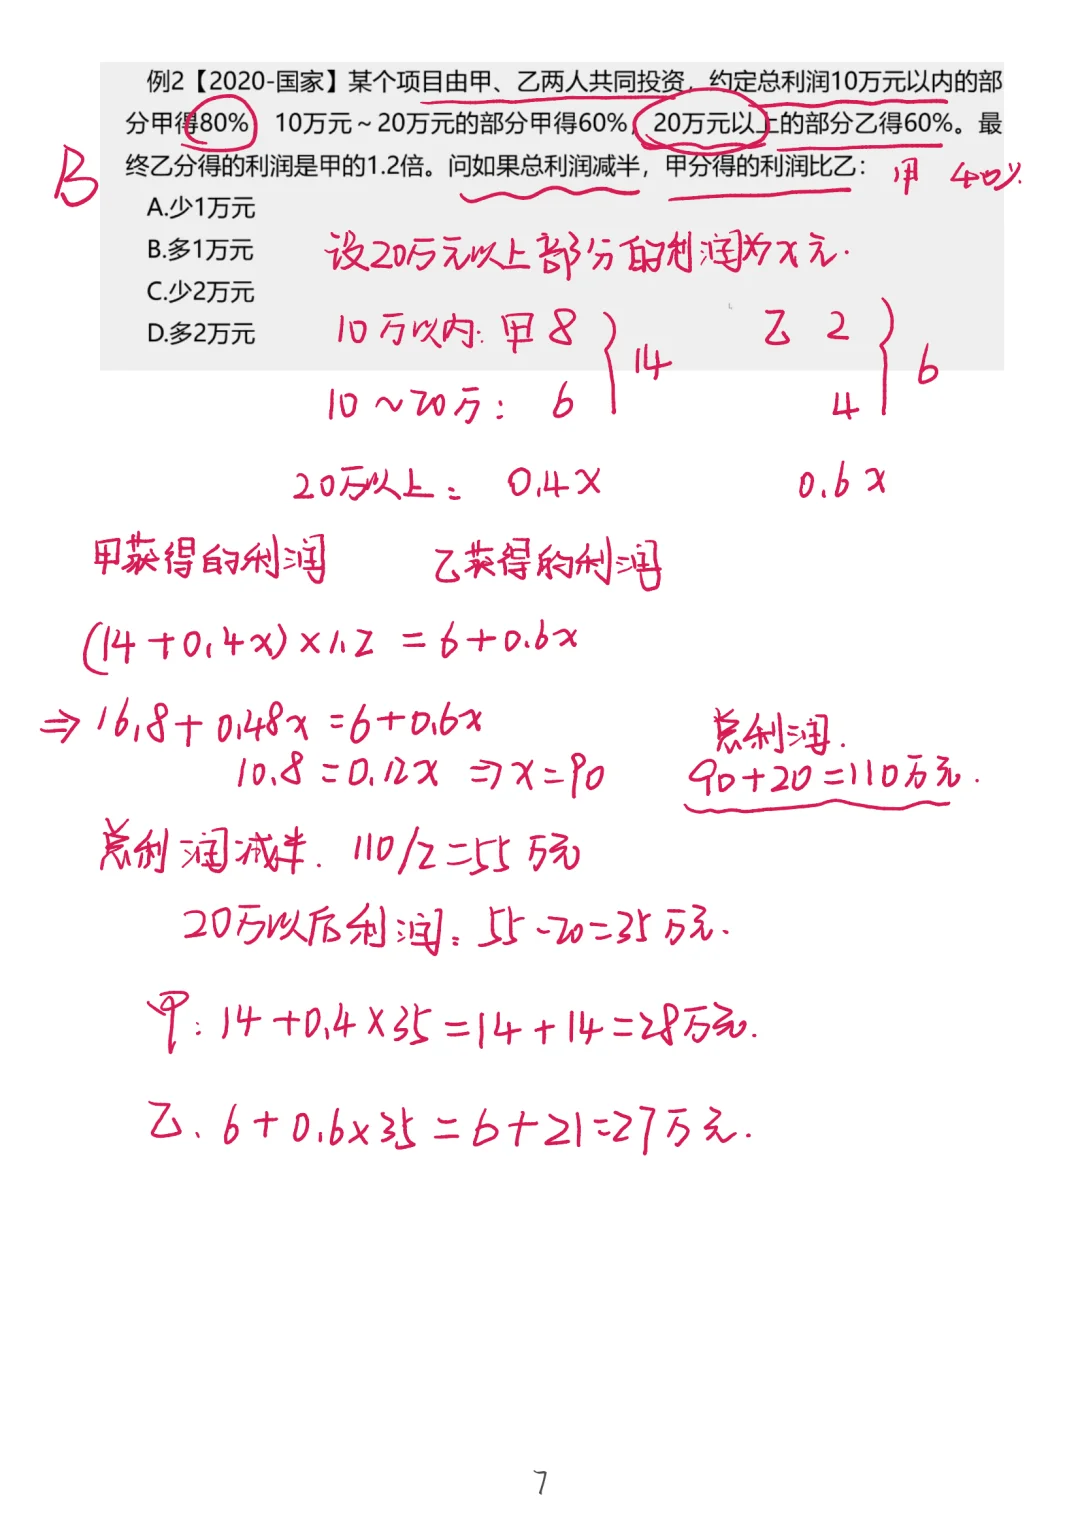 例2【2020-国家】某个项目由甲、乙两人共同投资，约定总利润10万元以内的部
分甲得80%，10万元～20万元的部分甲得60%，20万元以上的部分乙得60%。最
终乙分得的利润是甲的1.2倍。问如果总利润减半，甲分得的利润比乙：
甲 40%
B
A.少1万元
B.多1万元
C.少2万元
D.多2万元
设20万元以上部分的利润为x元.
10万以内: 甲 8 乙 2
14 6
10～20万: 6 4
20万以上: 0.4x 0.6x
甲获得的利润 乙获得的利润
(14+0.4x)×1.2 = 6+0.6x
⇒ 16.8+0.48x=6+0.6x
10.8=0.12x ⇒x=90
总利润.
90+20=110万元.
总利润减半. 110/2=55万元
20万以后利润: 55-20=35万元.
甲: 14+0.4×35=14+14=28万元.
乙. 6+0.6×35=6+21=27万元.
7